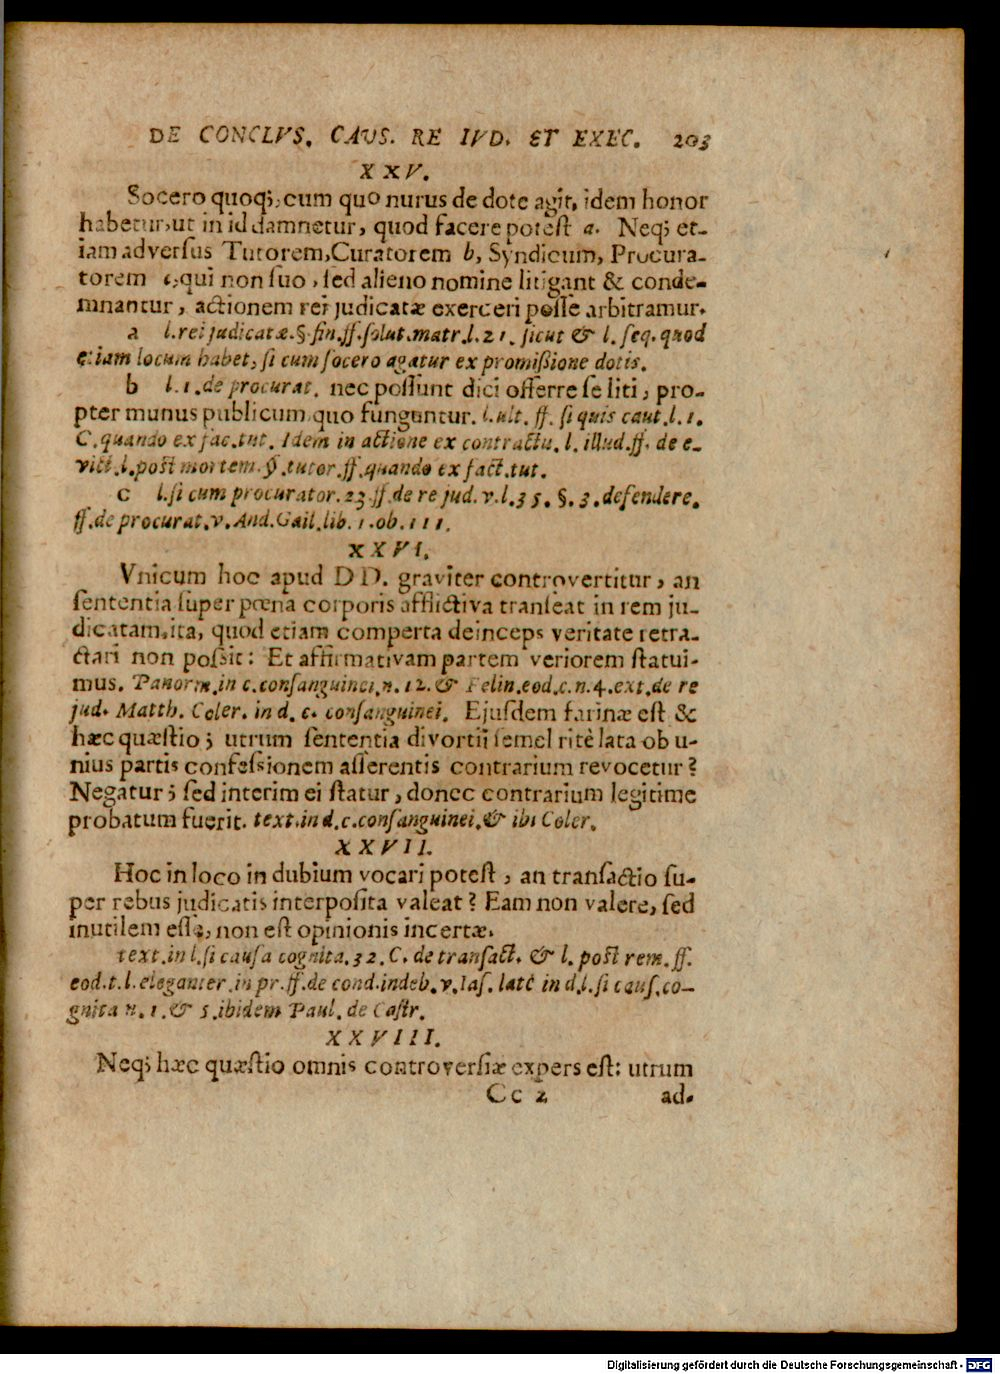 DE CONCLVS. CAVS. RE IVD. ET EXEC. 203
XXV.
Socero quoq;, cum quo nurus de dote agit, idem honor
habetur, ut in id damnetur, quod facere potest a. Neq; et-
iam adversus Tutorem, Curatorem b, Syndicum, Procura-
torem c, qui non suo, sed alieno nomine litigant & conde-
mnantur, actionem rei judicatæ exerceri posse arbitramur.
a l. rei judicatæ. §. fin. ff. solut. matr. l. 21. sicut & l. seq. quod
etiam locum habet, si cum socero agatur ex promißione dotis.
b l. 1. de procurat. nec possunt dici offerre se liti, pro-
pter munus publicum quo funguntur. l. ult. ff. si quis caut. l. 1.
C. quando ex fac. tut. Idem in actione ex contractu. l. illud. ff. de e-
vict. l. post mortem. §. tutor. ff. quando ex fact. tut.
c l. si cum procurator. 23. ff. de re jud. v. l. 35. §. 3. defendere.
ff. de procurat. v. And. Gail. lib. 1. ob. 111.
XXVI.
Vnicum hoc apud DD. graviter controvertitur, an
sententia super pœna corporis afflictiva transeat in rem ju-
dicatam, ita, quod etiam comperta deinceps veritate retra-
ctari non possit: Et affirmativam partem veriorem statui-
mus. Panorm. in c. consanguinei. n. 12. & Felin. eod. c. n. 4. ext. de re
jud. Matth. Coler. in d. c. consanguinei. Ejusdem farinæ est &
hæc quæstio; utrum sententia divortii semel ritè lata ob u-
nius partis confessionem asserentis contrarium revocetur?
Negatur; sed interim ei statur, donec contrarium legitime
probatum fuerit. text. in d. c. consanguinei. & ibi Coler.
XXVII.
Hoc in loco in dubium vocari potest, an transactio su-
per rebus judicatis interposita valeat? Eam non valere, sed
inutilem esse, non est opinionis incertæ.
text. in l. si causa cognita. 32. C. de transact. & l. post rem. ff.
eod. t. l. eleganter. in pr. ff. de cond. indeb. v. Ias. latè in d. l. si caus. co-
gnita n. 1. & 5. ibidem Paul. de Castr.
XXVIII.
Neq; hæc quæstio omnis controversiæ expers est: utrum
Cc 2 ad-
Digitalisierung gefördert durch die Deutsche Forschungsgemeinschaft - DFG